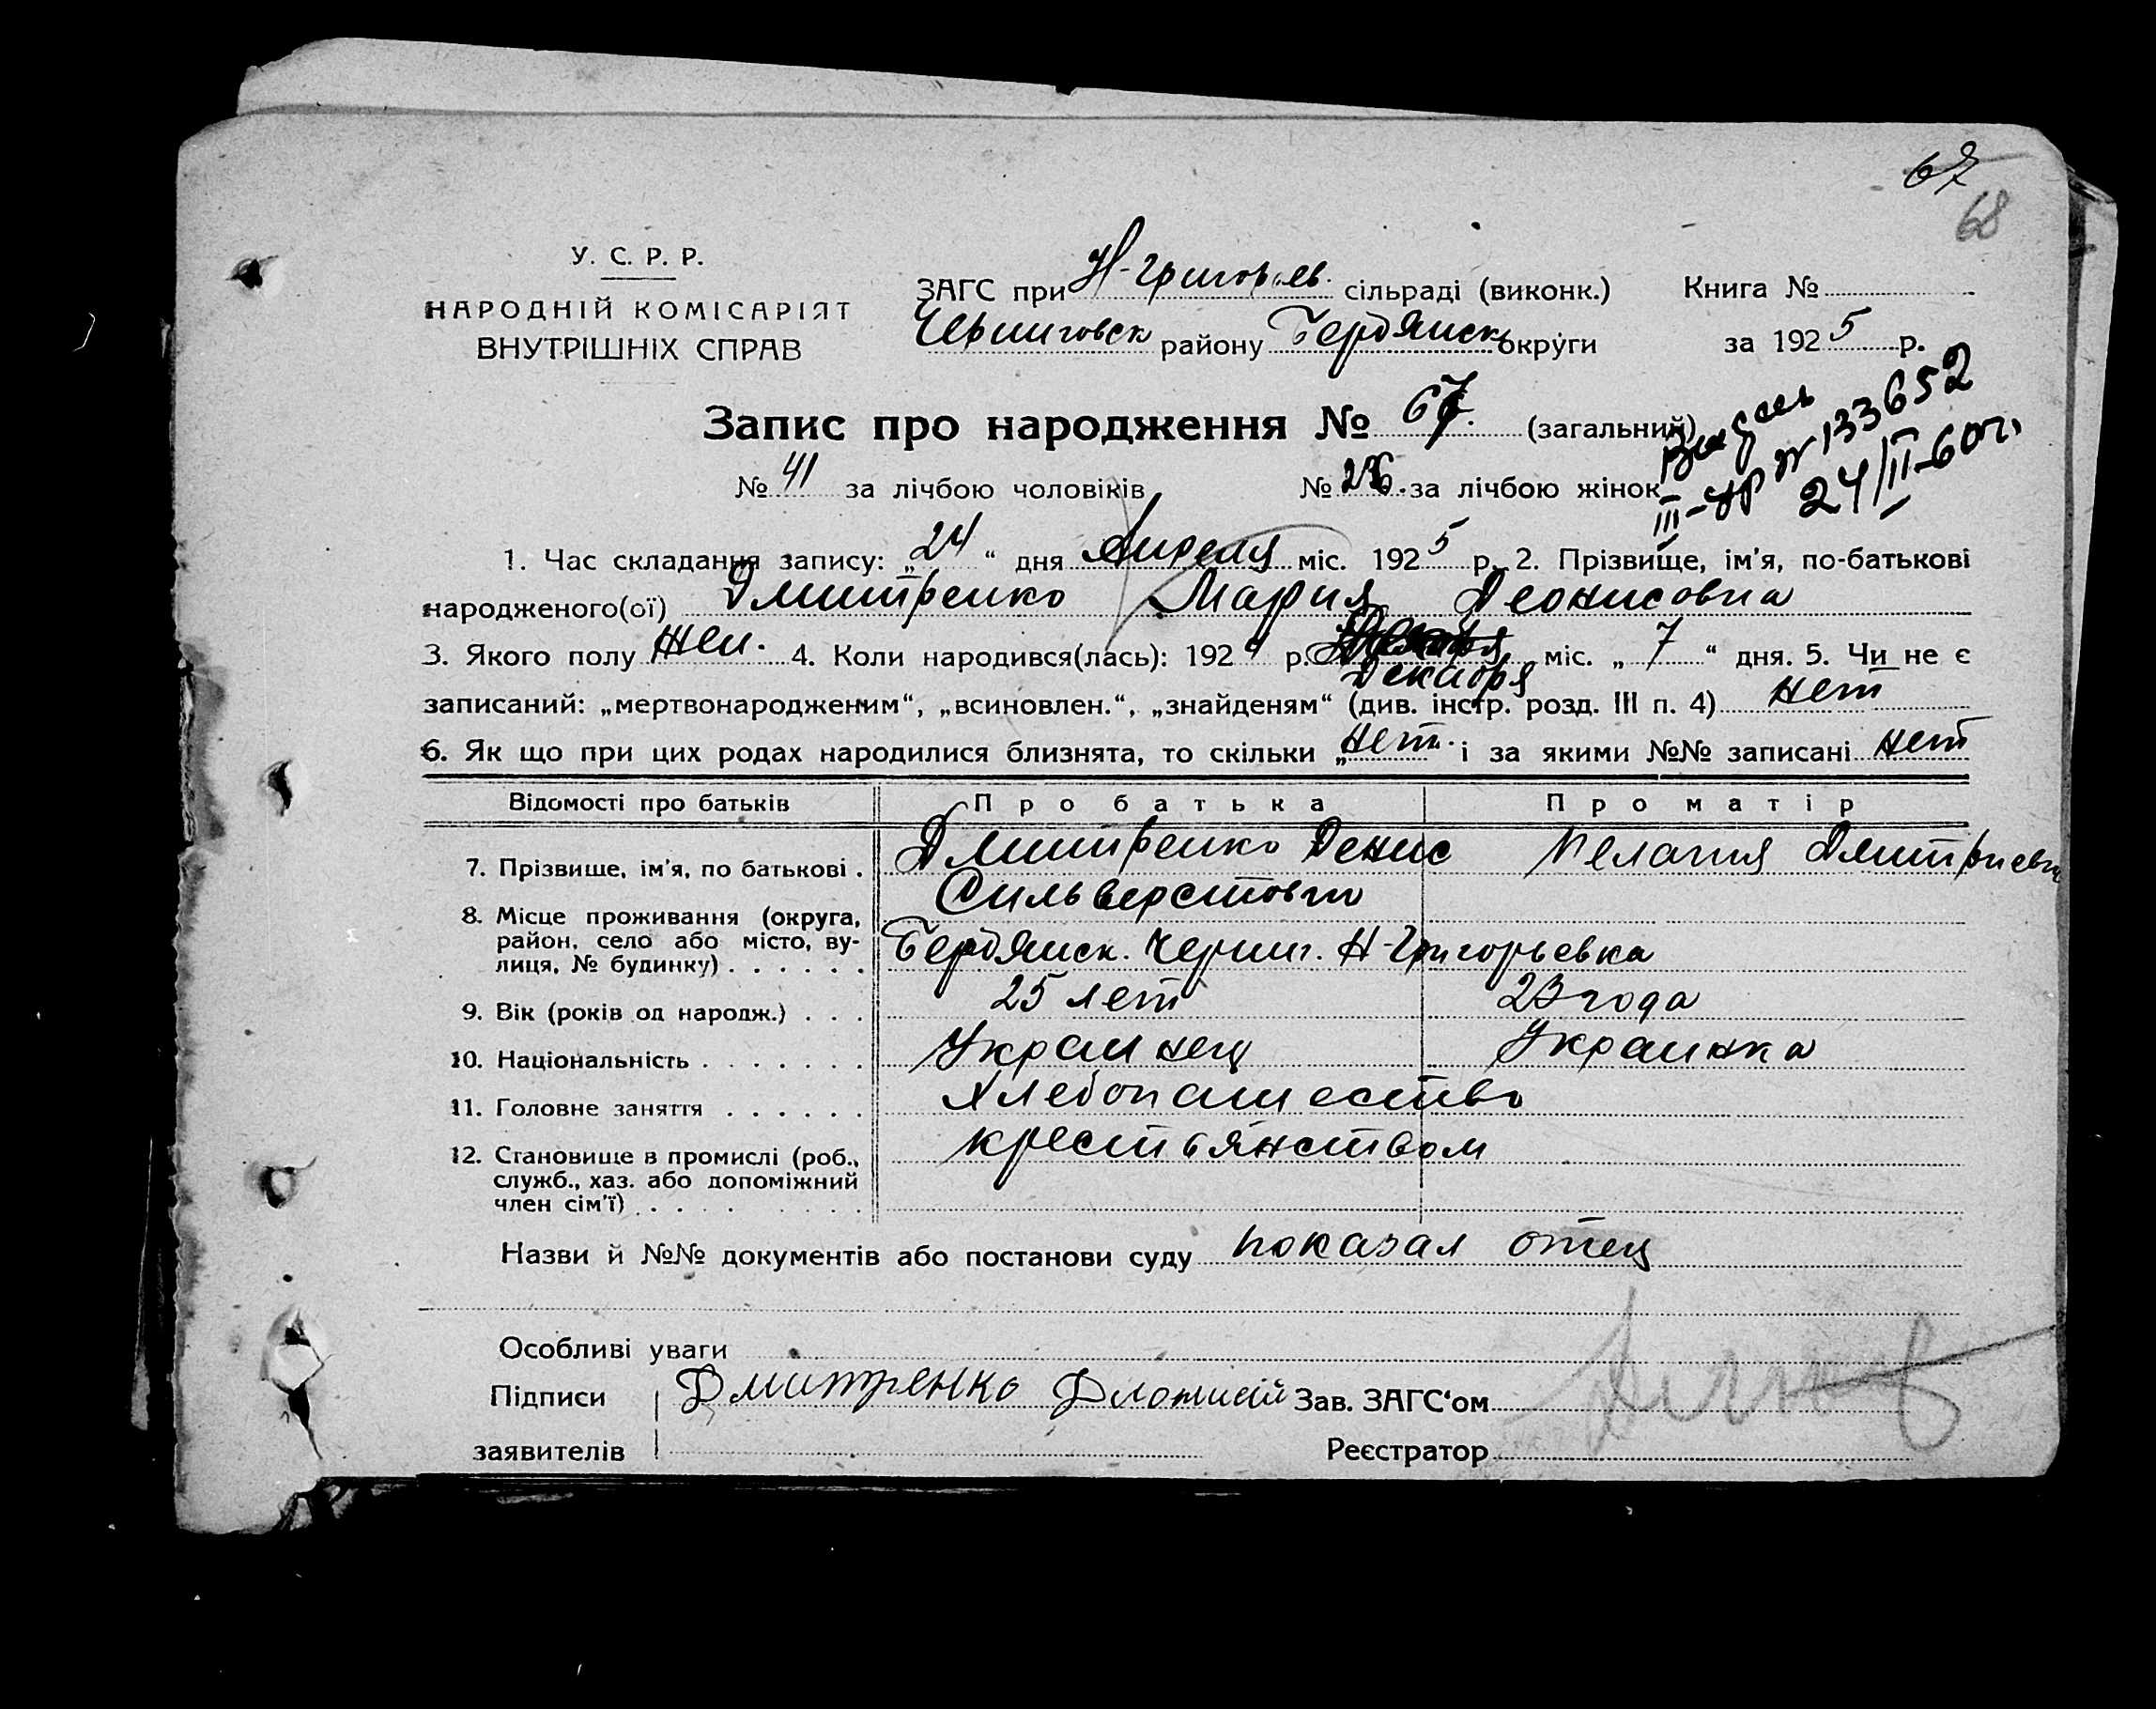 67
68
У. С. Р. Р.
НАРОДНІЙ КОМІСАРІЯТ
ВНУТРІШНІХ СПРАВ
ЗАГС при Н-Григорьев. сільраді (виконк.) Книга №
Черниговск району Бердянск округи за 1925 р.
Запис про народження № 67. (загальний)
№ 41 за лічбою чоловіків № 26. за лічбою жінок
III-ЖР № 133652
24/II-60 г.
1. Час складання запису: „24“ дня Апреля міс. 1925 р. 2. Прізвище, ім'я, по-батькові
народженого(ої) Дмитренко Мария Деонисовна
3. Якого полу жен. 4. Коли народився(лась): 1924 р. Декабря міс. „7“ дня. 5. Чи не є
записаний: „мертвонародженим“, „всиновлен.“, „знайденям“ (див. інстр. розд. III п. 4) нет
6. Як що при цих родах народилися близнята, то скільки „нет“ і за якими №№ записані нет
Відомості про батьків Про батька Про матір
7. Прізвише, ім'я, по батькові . Дмитренко Денис Пелагия Дмитриевна
Сильверстович
8. Місце проживання (округа,
район, село або місто, ву-
лиця, № будинку) . . . . . . Бердянск. Черниг. Н-Григорьевка
9. Вік (років од народж.) . . . 25 лет 23 года
10. Національність . . . . . . . Украинец Украинка
11. Головне заняття . . . . . . Хлебопашество
12. Становище в промислі (роб., крестьянством
служб., хаз. або допоміжний
член сім'ї) . . . .
Назви й №№ документів або постанови суду показал отец
Особливі уваги
Підписи Дмитренко Зав. ЗАГС'ом
заявителів Реєстратор